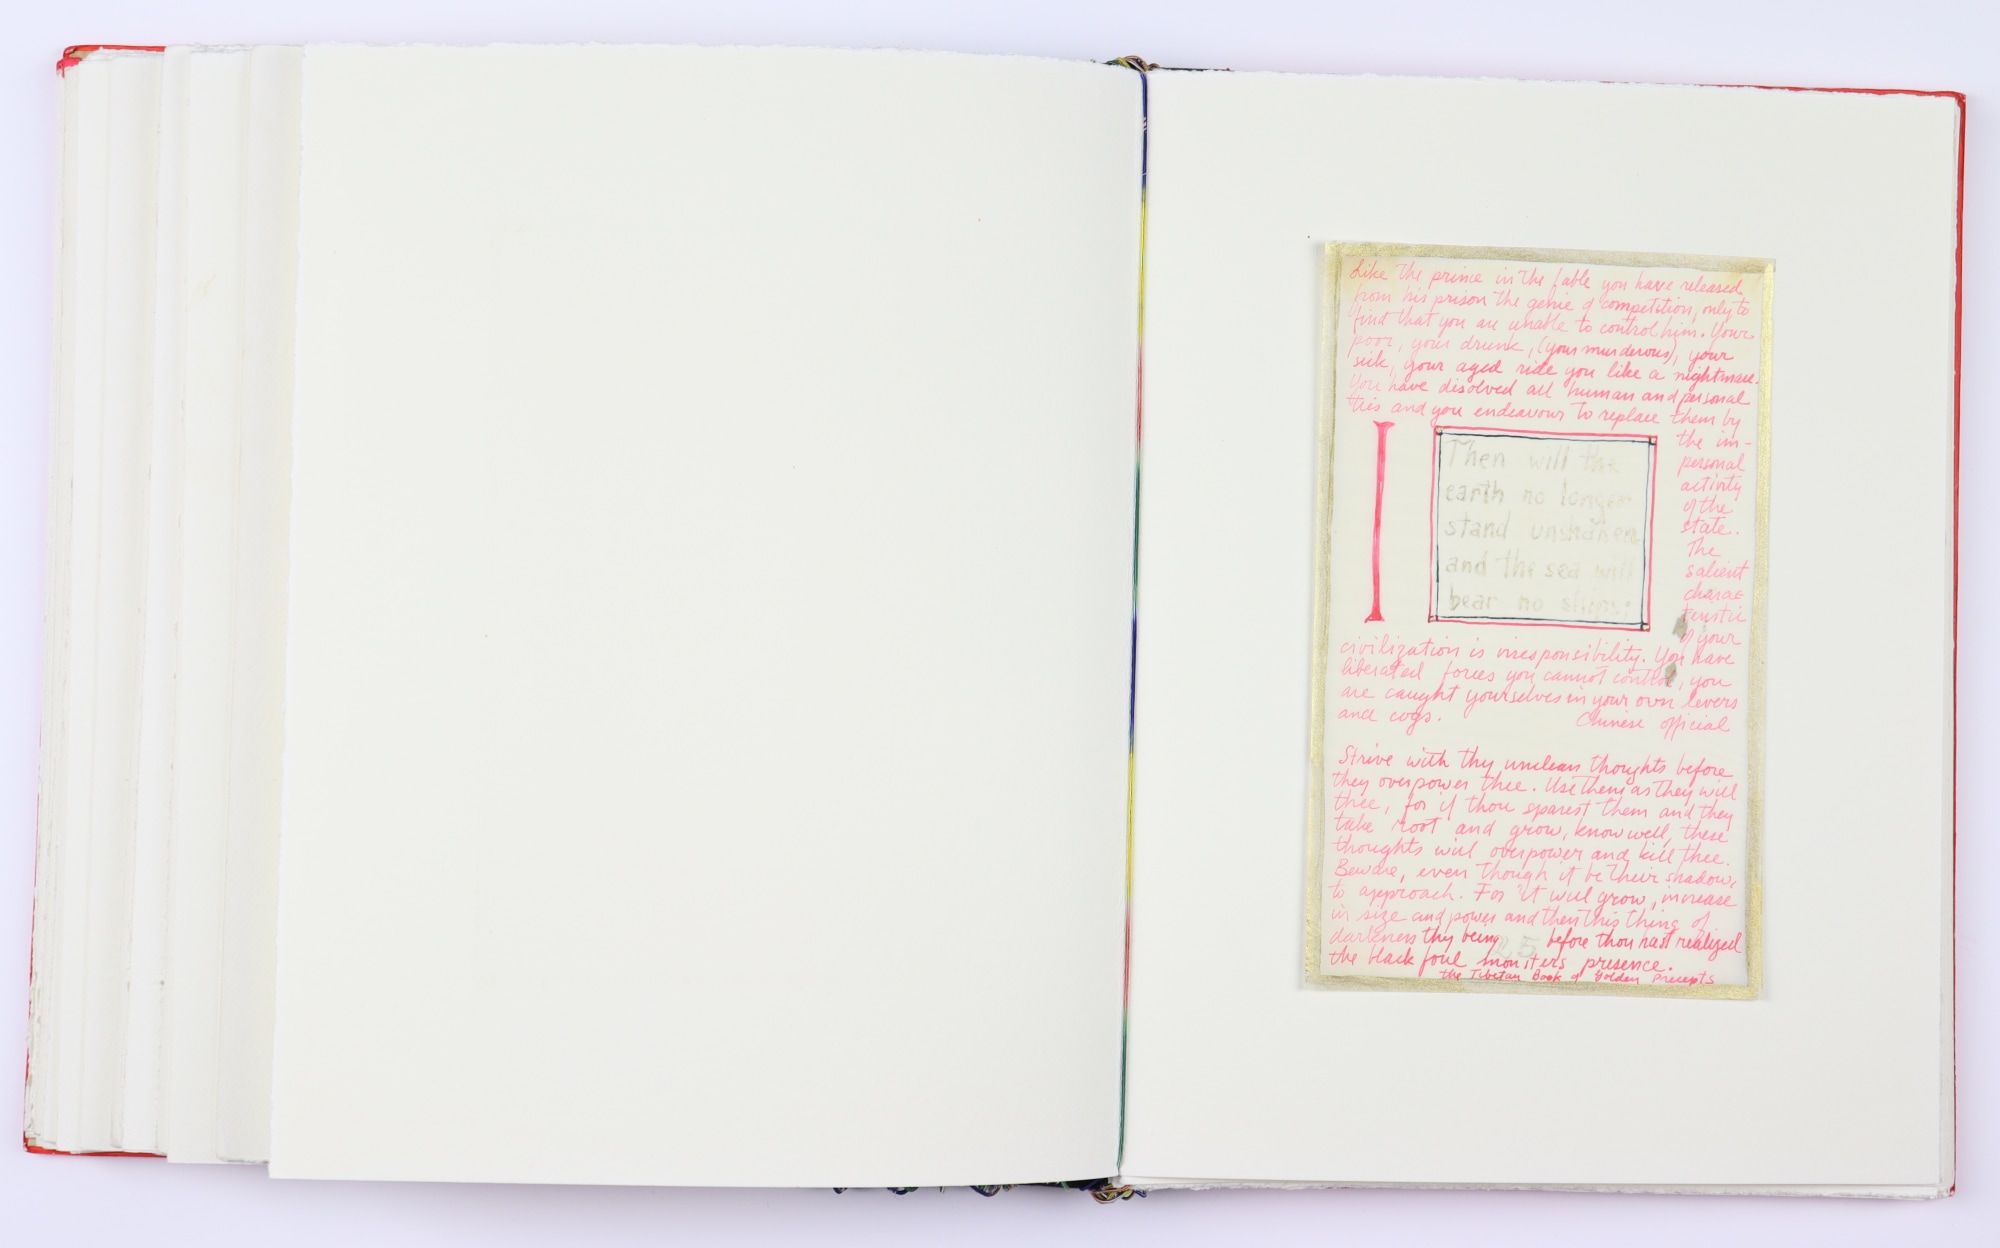 Like the prince in the fable you have released
from his prison the genie of competition, only to
find that you are unable to control him. Your
poor, your drunk, (your murderous), your
sick, your aged ride you like a nightmare.
You have disolved all human and personal
ties and you endeavour to replace them by
the im-
personal
activity
of the
state.
The
salient
charac
teristic
of your
I
Then will the
earth no longer
stand unshaken
and the sea will
bear no ships;
civilization is irresponsibility. You have
liberated forces you cannot control, you
are caught yourselves in your own levers
and cogs. Chinese official
Strive with thy unclean thoughts before
they overpower thee. Use them as they will
thee, for if thou sparest them and they
take root and grow, know well, these
thoughts will overpower and kill thee.
Beware, even though it be their shadow,
to approach. For it will grow, increase
in size and power and then this thing of
darkness thy being before thou hast realized
the black foul monsters presence.
the Tibetan Book of Golden Precepts